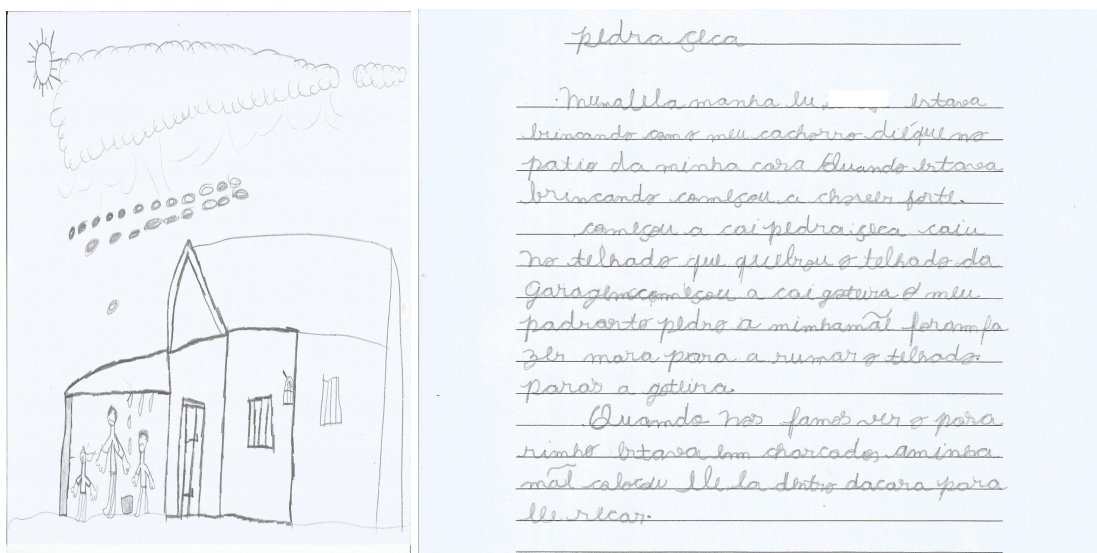 pedra çeca
Numalela manha eu, estava
brincando com o meu cachorro diéque no
patio da minha casa Quando estava
brincando começou a chover forte.
começou a cai pedra çeca caiu
no telhado que quebrou o telhado da
garagem começou a cai goteira O meu
padrasto pedro a minha mãe foram fa
zer masa para a rumar o telhado.
paras a goteira.
Quando nos famos ver o pasa
rinho estava em charcados aminha
mãe colocou ele la dentro dacasa para
ele secar.